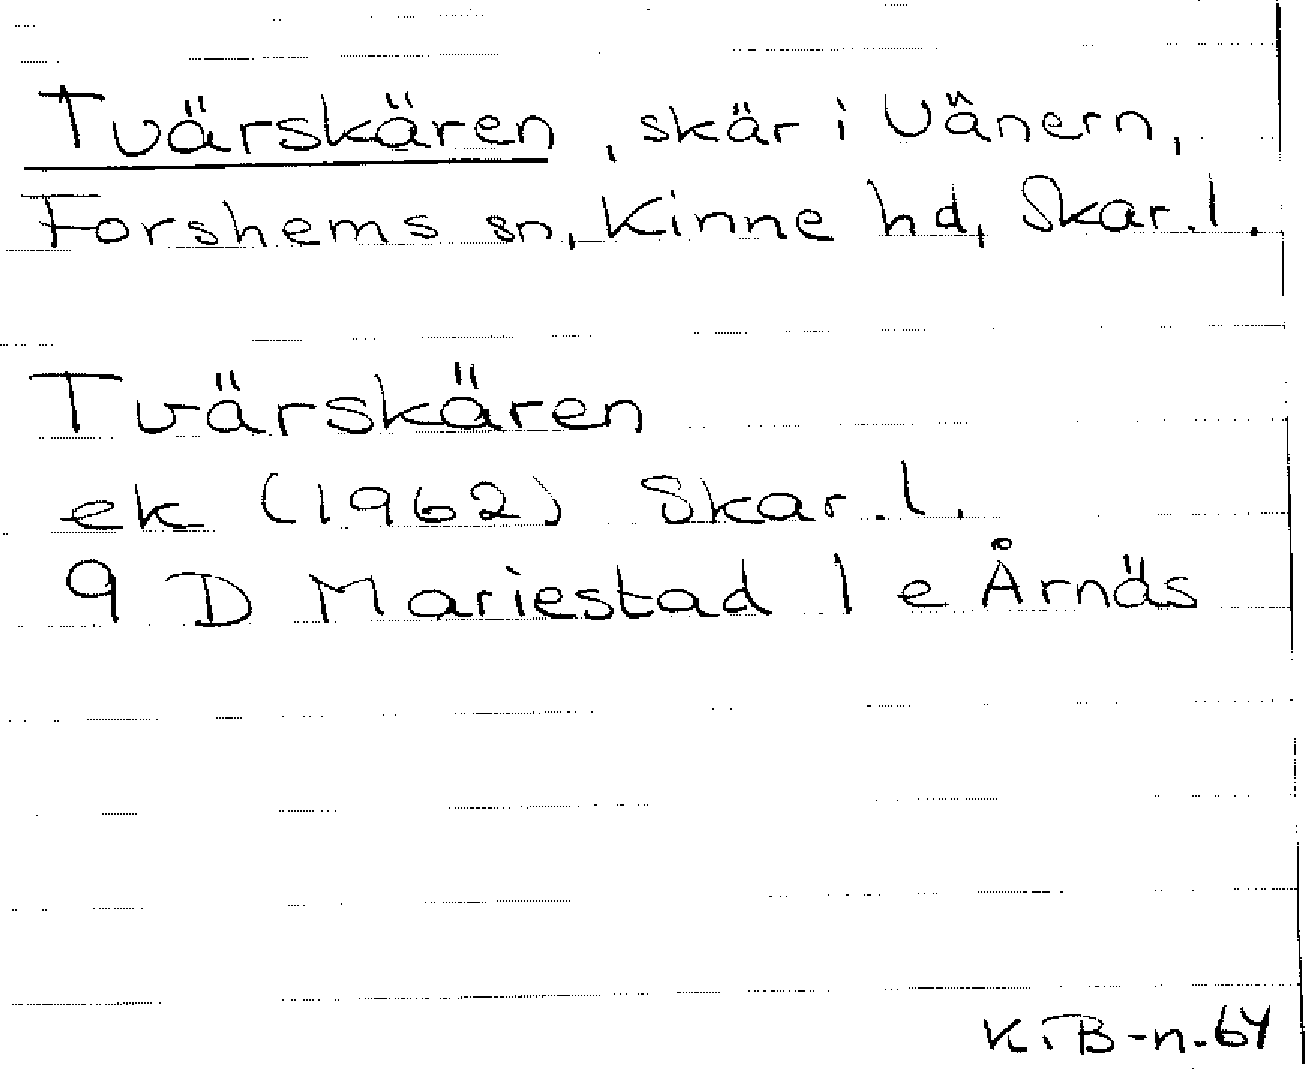 Tvärskären, skär i Vänern,
Forshems sn, Kinne hd, Skar.l.
Tvärskären
ek (1962) Skar.l.
9 D Mariestad 1 e Årnäs
K.B-n.64